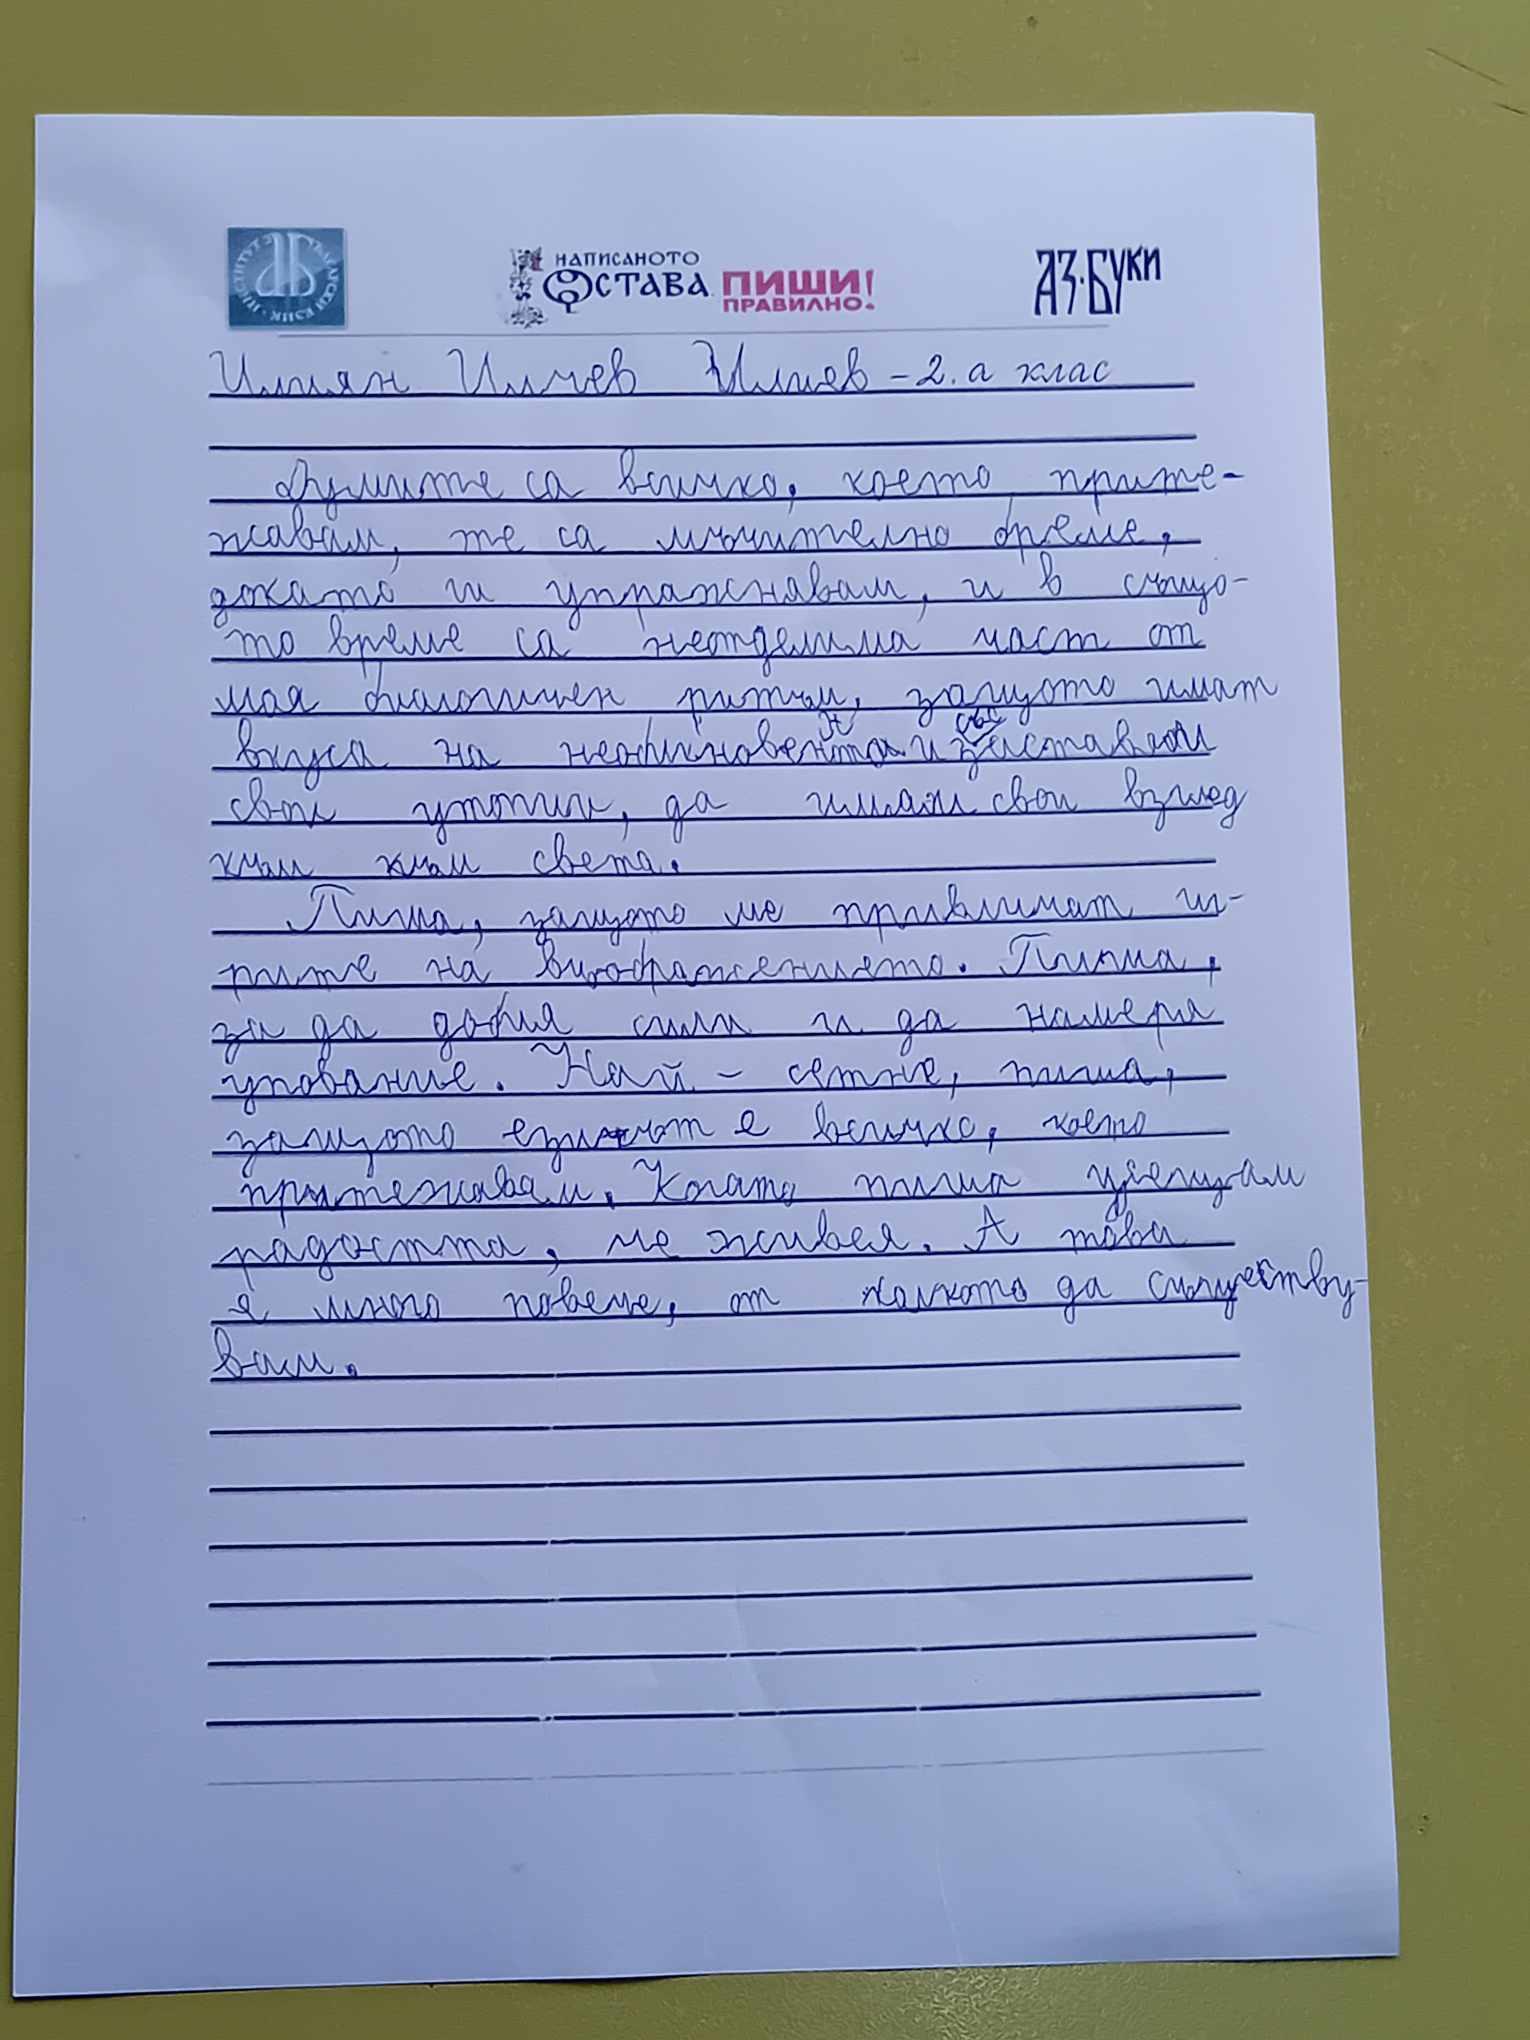 ИНСТИТУТ ЗА БЪЛГАРСКИ ЕЗИК
НАПИСАНОТО
ОСТАВА
ПИШИ
ПРАВИЛНО!
АЗ·БУКИ
Илиян Илчев Илиев - 2. а клас
Думите са всичко, което прите-
жавам, те са мъчително бреме,
докато ги упражнявам, и в също-
то време са неотделима част от
моя биологичен ритъм, защото имат
вкуса на необикновеното и
свои утопии, да имам свои взглед
към към света.
Пиша, защото ме привличат ши-
рите на въображението. Пиша,
за да добия сили и да намеря
упование. Най - сетне, пиша,
защото езикът е всичко, което
притежавам. Когато пиша усещам
радостта, че живея. А това
е много повече, от колкото да съществу-
вам.